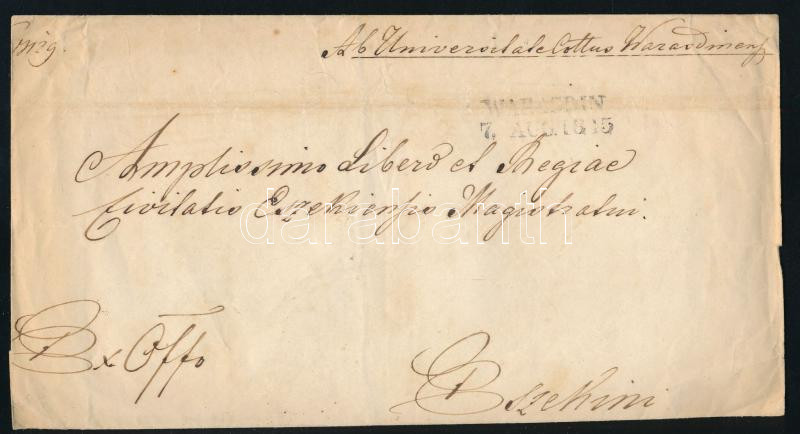 Ab Universitate Cottus Warasdinensis
WARASDIN
7. AUG. 1845
Amplissimo Libero et Regiae
Civitatis Eszekiensis Magistratui.
darabanth
Ex Offo
Eszekini